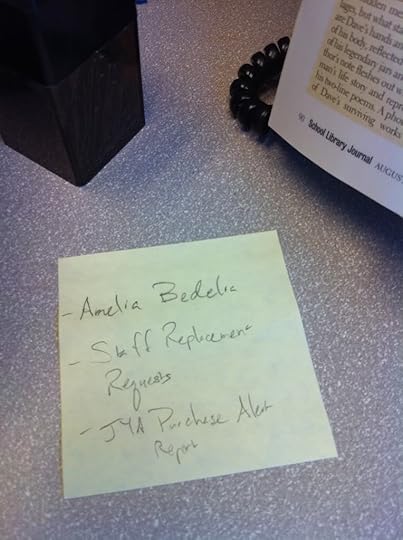 sudden me
lages, but what sta
are Dave's hands an
of his body, reflected
of his legendary jars an
thor's note fleshes out w
man's life story and repr
his two-line poems. A pho
of Dave's surviving works
90 School Library Journal AUGUST
- Amelia Bedelia
- Staff Replacement
Requests
- JYA Purchase Alert
Report